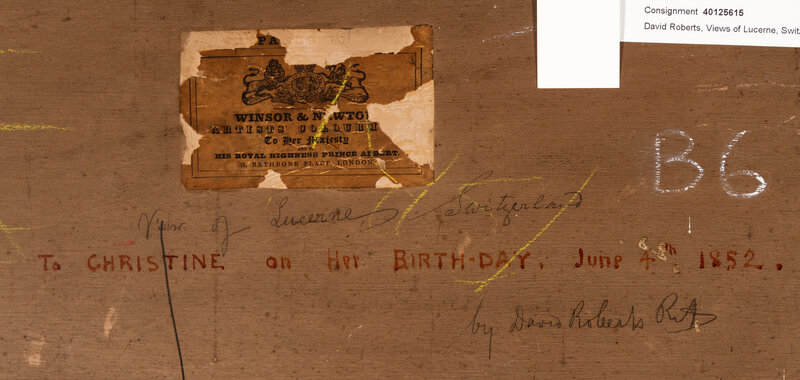 Consignment 40125615
David Roberts, Views of Lucerne, Swit
PA
WINSOR & NEWTO
ARTISTS COLOURM
To Her Majesty
HIS ROYAL HIGHNESS PRINCE ALBERT.
38, RATHBONE PLACE, LONDON
B6
View of Lucerne, Switzerland
To CHRISTINE on Her BIRTH-DAY. June 4th 1852.
by David Roberts RA